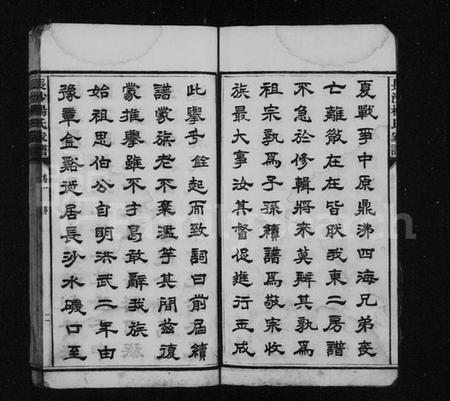 夏戰爭中原鼎沸四海兄弟喪
亡離散在在皆昰我東二房譜
不急於修輯將來莫辨其孰為
祖宗孰為子孫續譜為敬宗收
族最大事汝其督促進行玉成
此舉兮銓起而致詞曰前屆續
譜蒙族老不棄濫竽其間茲復
蒙推舉雖不才曷敢辭我族
始祖思伯公自明洪武二年由
豫章金谿徙居長沙水磯口至
長沙楊氏家譜
卷一